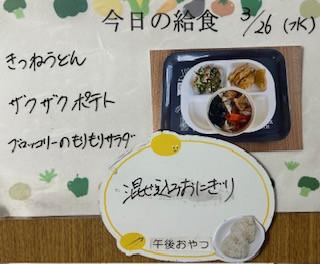 今日の給食 3/26 (水)
きつねうどん
ザクザクポテト
ブロッコリーのもりもりサラダ
混ぜ込みおにぎり
午後おやつ